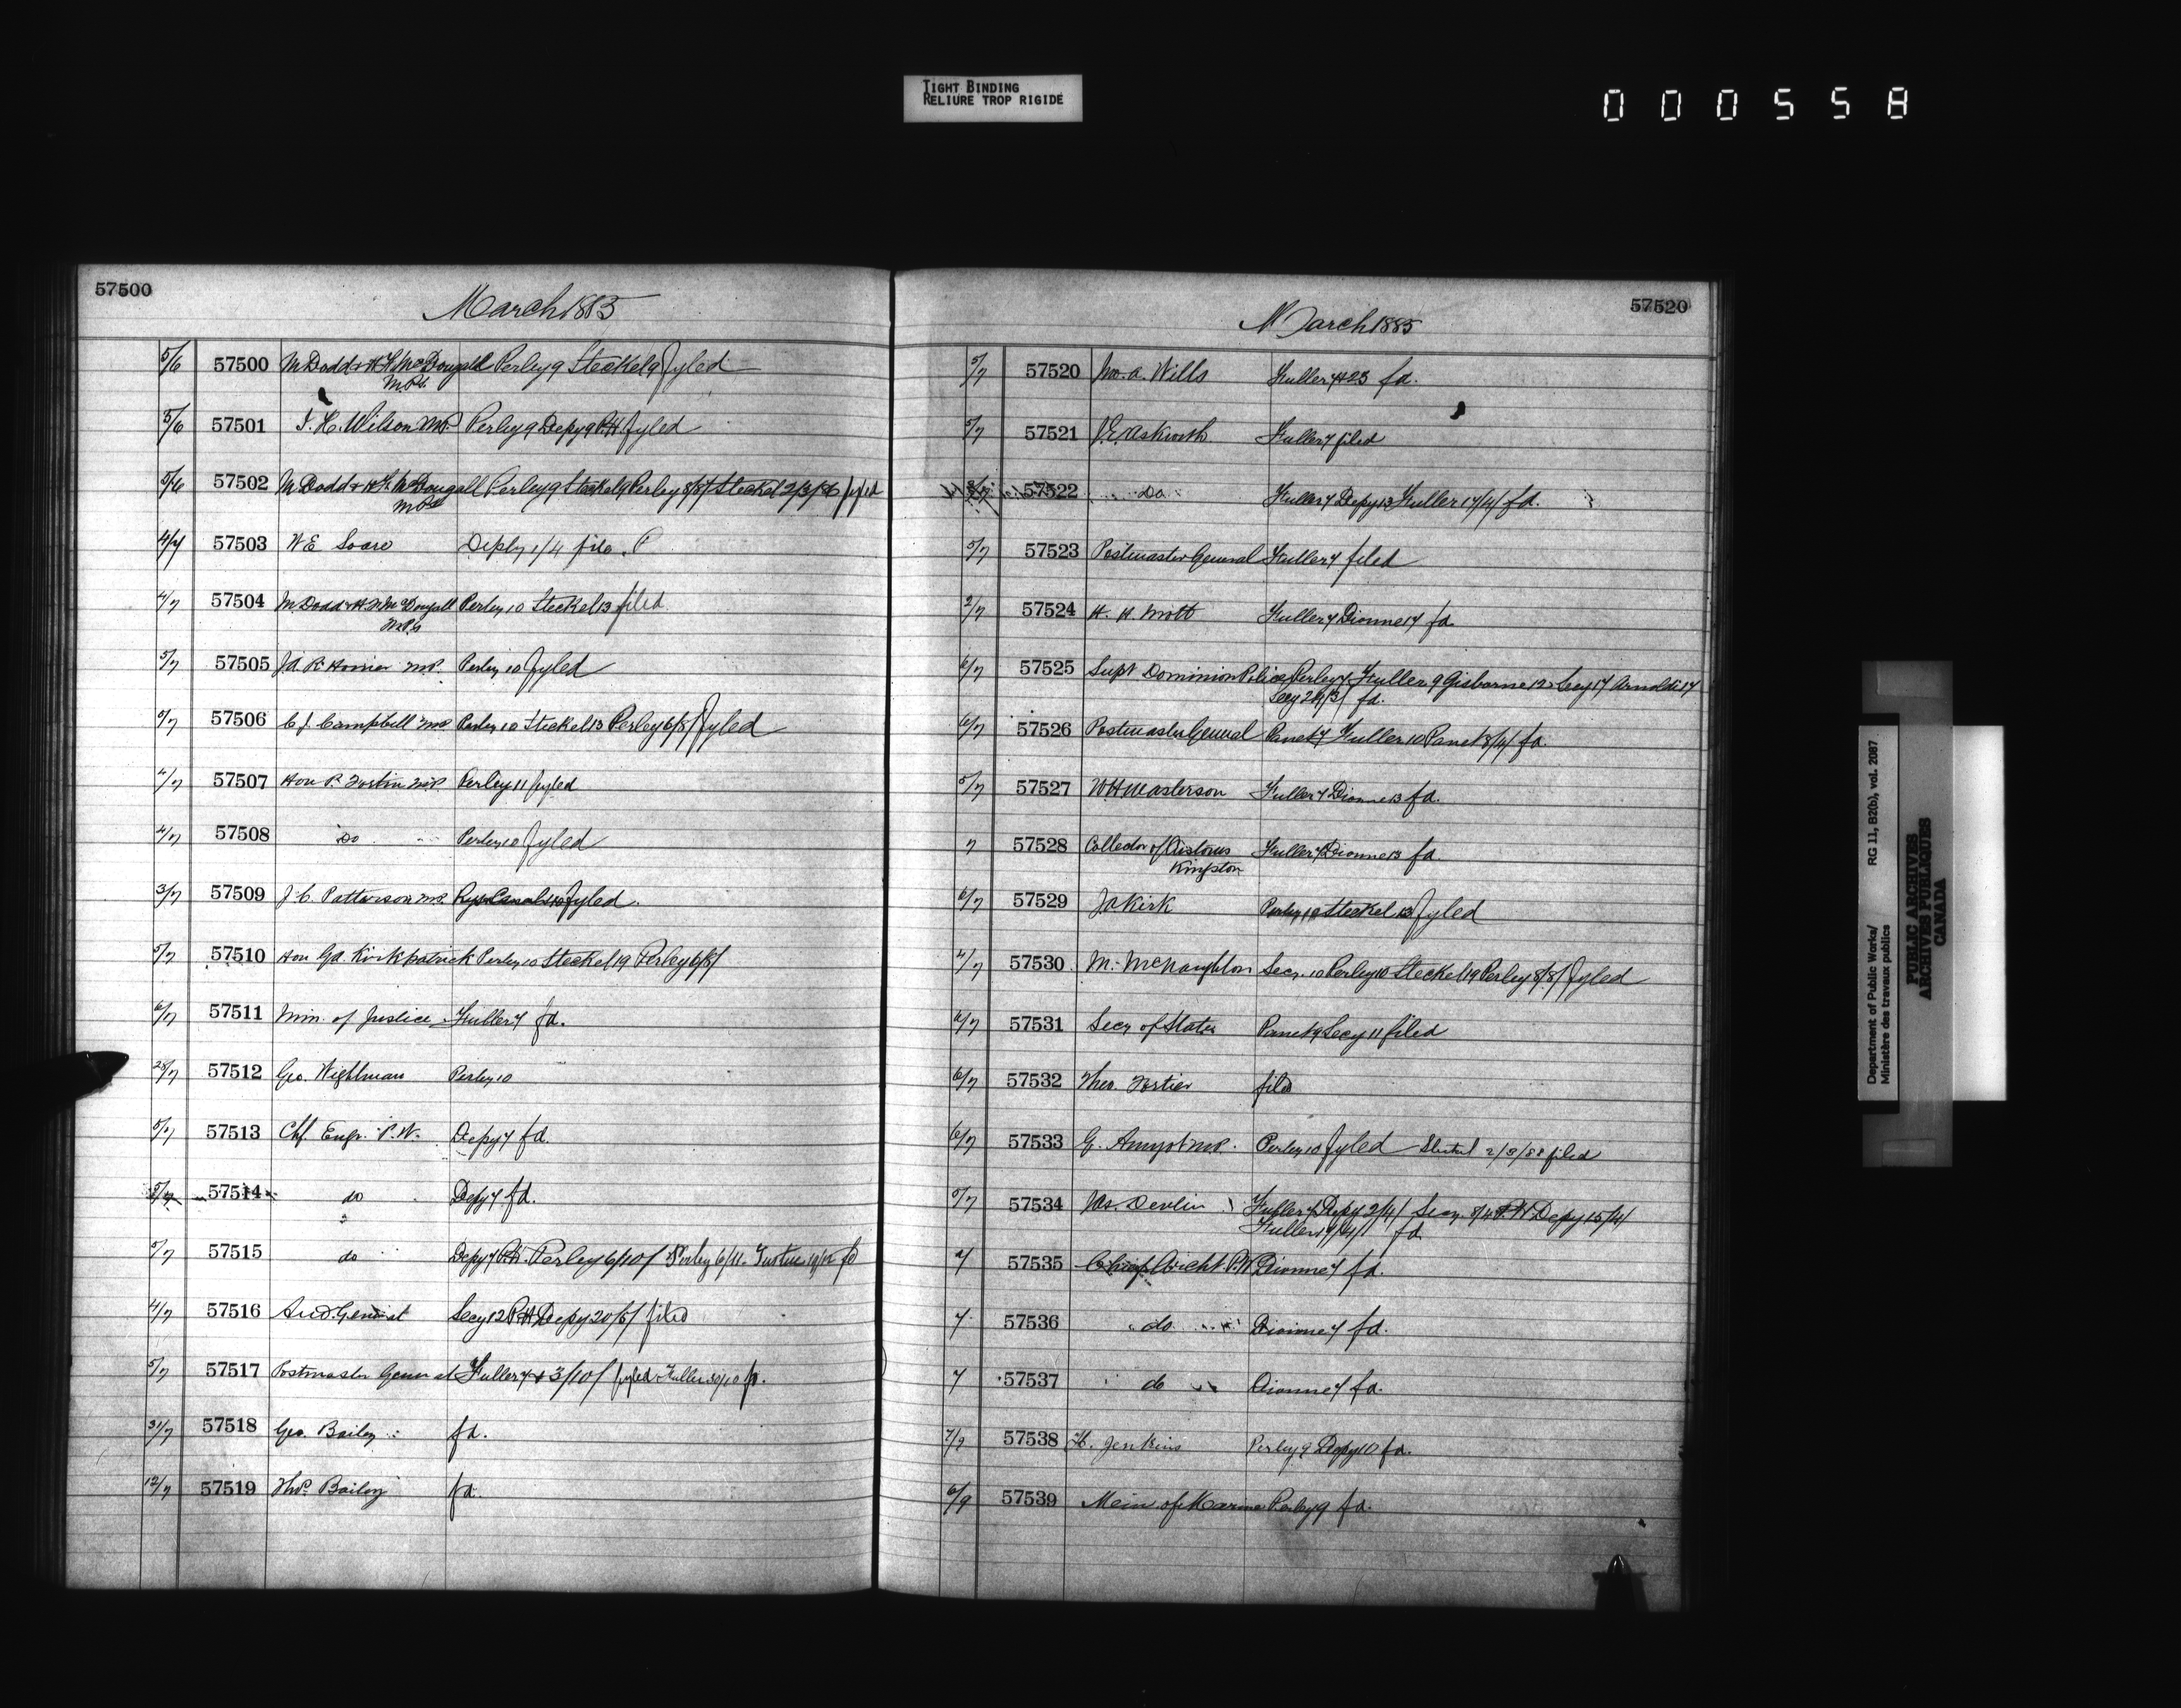 TIGHT BINDING
RELIURE TROP RIGIDE
000558
57500
March 1885
5/6 57500 M Dodd & H F McDougall Perley 9 Steckel 9 fyled
MPs
5/6 57501 J. H. Wilson MP. Perley 9 Depy 9 P.H. fyled
5/6 57502 M Dodd & H F McDougall Perley 9 Steckel 19 Perley 8/8/ Steckel 2/3/86 fyled
MPs
4/7 57503 W E
4/7 57504 M. Dodd & H. F. McDougall Perley 10 Steckel 13 filed
M.P.s
5/7 57505 MP. Perley 10 fyled
5/7 57506 C. J. Campbell MP Perley 10 Steckel 13 Perley 6/8/ fyled
4/7 57507 Hon P. Fortin MP Perley 11 fyled
4/7 57508 Do Perley 10 fyled
3/7 57509 J. C. Patterson MP. Rys & Canals 10 fyled.
5/7 57510 Hon Ga Kirkpatrick Perley 10 Steckel 19 Perley 6/8/
6/7 57511 Min. of Justice Fuller 7 fd.
28/7 57512 Geo. Wightman Perley 10
5/7 57513 Chf. Engr. P.W. Depy 7 fd.
5/7 57514 do Depy 7 fd.
5/7 57515 do Depy 7 P.H. Perley 6/10/ Perley 6/11 19/12 fd
4/7 57516 Aud. General Secy 12 P.H. Depy 20/5/ filed
5/7 57517 Postmaster General Fuller 7 & 3/10/ fyled Fuller 30/10 fd.
31/7 57518 Geo. Bailey fd.
12/7 57519 Thos. Bailey fd.
57520
March 1885
5/7 57520 A. Wills Fuller 7 & 23 fd.
5/7 57521 J. E. Askwith Fuller 7 filed
57522 Do Fuller 7 Depy 13 Fuller 17/4/ fd.
5/7 57523 Postmaster General Fuller 7 filed
2/7 57524 H. H. Mott Fuller 7 Dionne 17 fd.
6/7 57525 Supt Dominion Police Perley 7 Fuller 9 Gisborne 12 Secy 17 Arnoldi 17
Secy 24/3/ fd.
6/7 57526 Postmaster General Panet 7 Fuller 10 Panet 8/4/ fd.
5/7 57527 W H Masterson Fuller 7 Dionne 13 fd.
7 57528 Collector of Customs Fuller 7 Dionne 13 fd.
Kingston
6/7 57529 J A Kirk Perley 10 Steckel 13 fyled
4/7 57530 M. McNaughton Secy. 10 Perley 10 Steckel 19 Perley 8/8/ fyled
6/7 57531 Secy of State Panet 9 Secy 11 filed
6/7 57532 Theo. Fortier filed
6/7 57533 G. Amyot MP. Perley 10 fyled Steckel 2/3/88 filed
5/7 57534 Jas. Devlin Fuller 7 Depy 2/4/ Secy. 8/4 P.H. Depy 15/4/
Fuller 19/4/ fd
7 57535 Chief Archt. P.W. Dionne 7 fd.
7 57536 do Dionne 7 fd.
7 57537 do Dionne 7 fd.
7/9 57538 H. Jenkins Perley 9 Depy 10 fd.
6/9 57539 Min. of Marine Perley 9 fd.
Department of Public Works/ RG 11, B2(b), vol. 2087
Ministère des travaux publics
PUBLIC ARCHIVES
ARCHIVES PUBLIQUES
CANADA